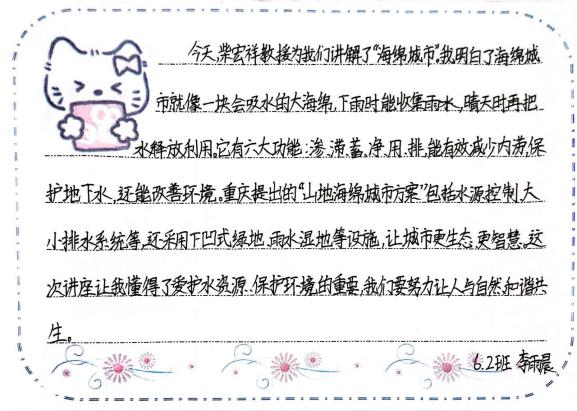 今天,柴宏祥教授为我们讲解了“海绵城市”。我明白了海绵城
市就像一块会吸水的大海绵,下雨时能收集雨水,晴天时再把
水释放利用。它有六大功能:渗、滞、蓄、净、用、排,能有效减少内涝,保
护地下水,还能改善环境。重庆提出的“山地海绵城市方案”包括水源控制、大
小排水系统等,还采用下凹式绿地、雨水湿地等设施,让城市更生态、更智慧。这
次讲座让我懂得了爱护水资源、保护环境的重要,我们要努力让人与自然和谐共
生。
6.2班 李雨晨